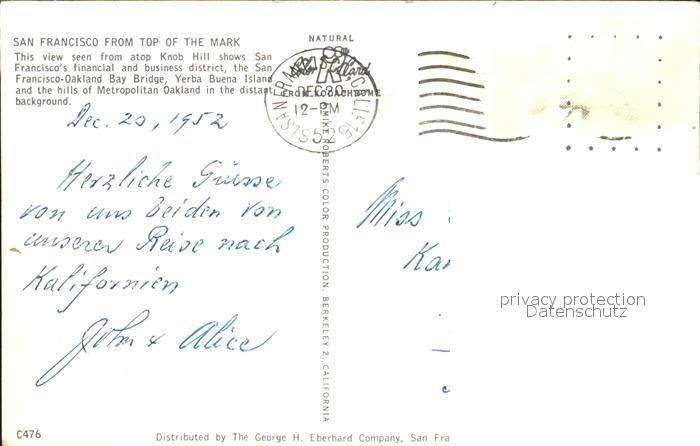 SAN FRANCISCO FROM TOP OF THE MARK
This view seen from atop Knob Hill shows San
Francisco's financial and business district, the San
Francisco-Oakland Bay Bridge, Yerba Buena Island
and the hills of Metropolitan Oakland in the distant
background.
Dec. 20, 1952
Herzliche Grüsse
von uns beiden von
unserer Reise nach
Kalifornien
John & Alice
C476
NATURAL
Color Card
FROM KODACHROME
SAN FRANCISCO
DEC 20
12-PM
MIKE ROBERTS COLOR PRODUCTION, BERKELEY 2, CALIFORNIA
Miss
Kar
privacy protection
Datenschutz
Distributed by The George H. Eberhard Company, San Fra